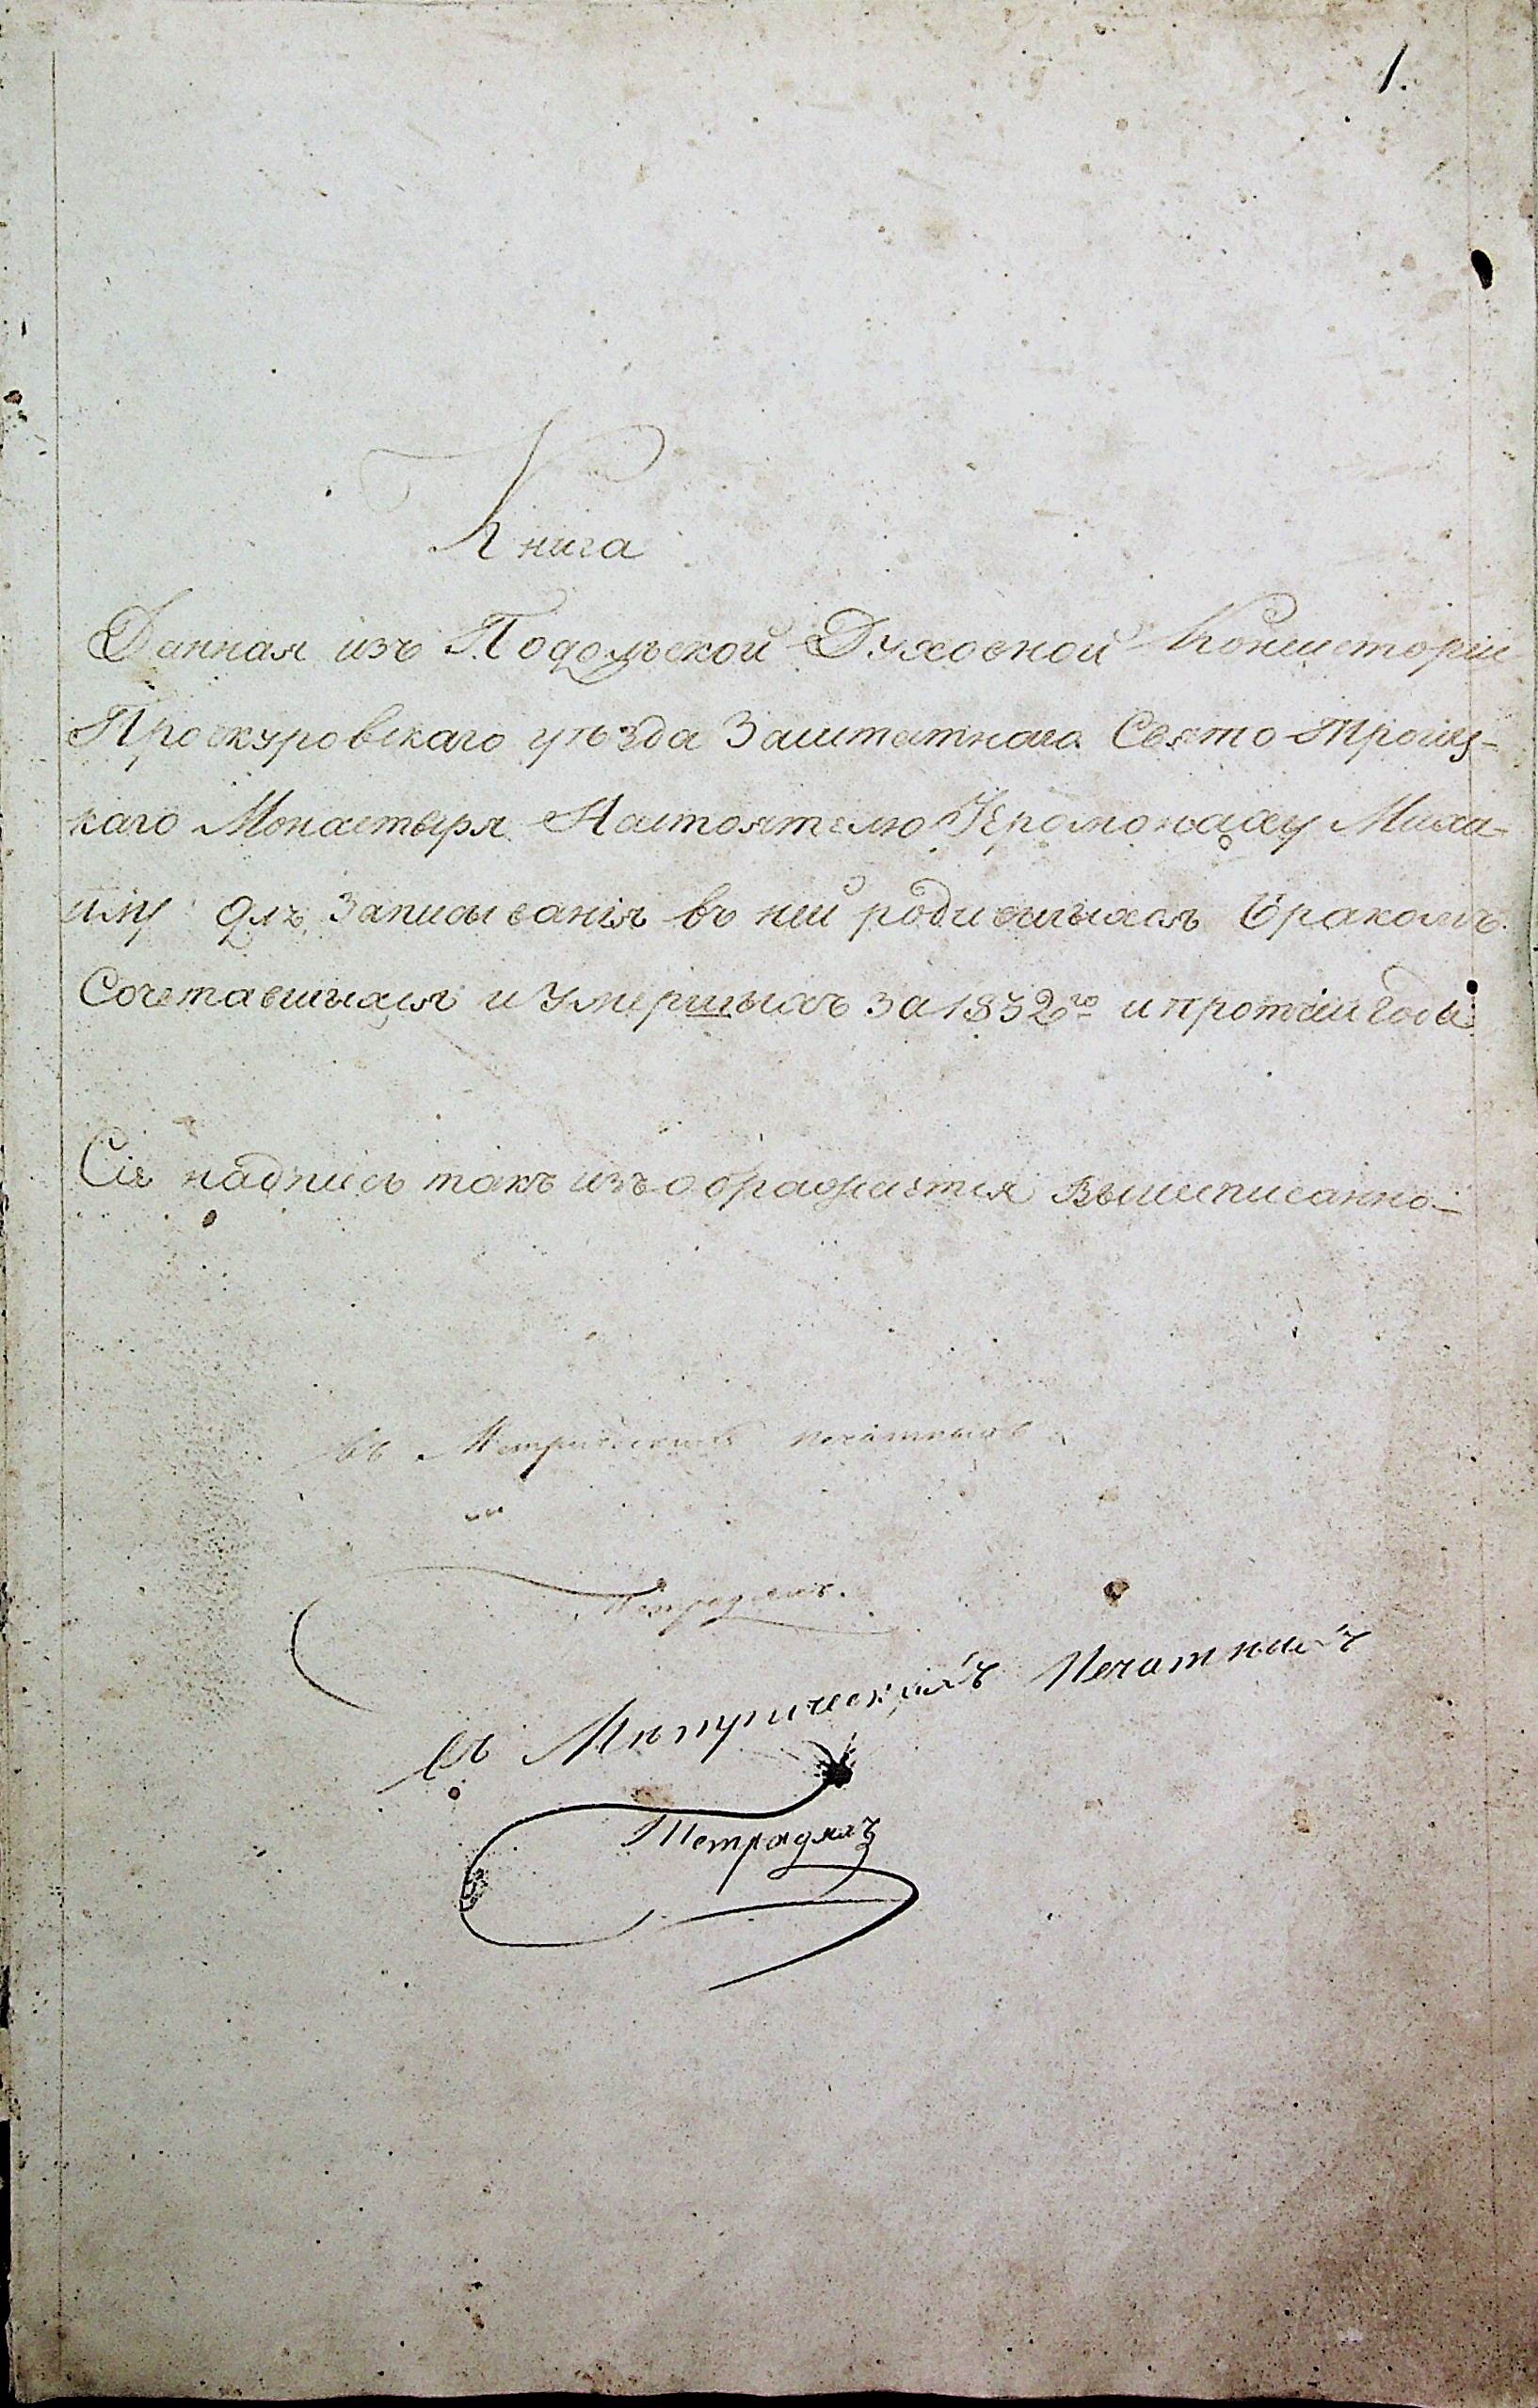 1.
Книга
Данная изъ Подольской Духовной Консисторіи
Проскуровскаго уѣзда Заштатнаго Свято Троиц-
каго Монастыря Настоятелю Іеромонаху Миха-
илу для Записыванія въ ней родившыхся Бракомъ
Сочетавшыхся и Умершыхъ за 1832го и протчіи Годы
Сіе надпись такъ изъображается Вышеписанно-
въ Метрическихъ печатныхъ
Тетрадяхъ.
въ Метрическихъ Печатныхъ
Тетрадяхъ